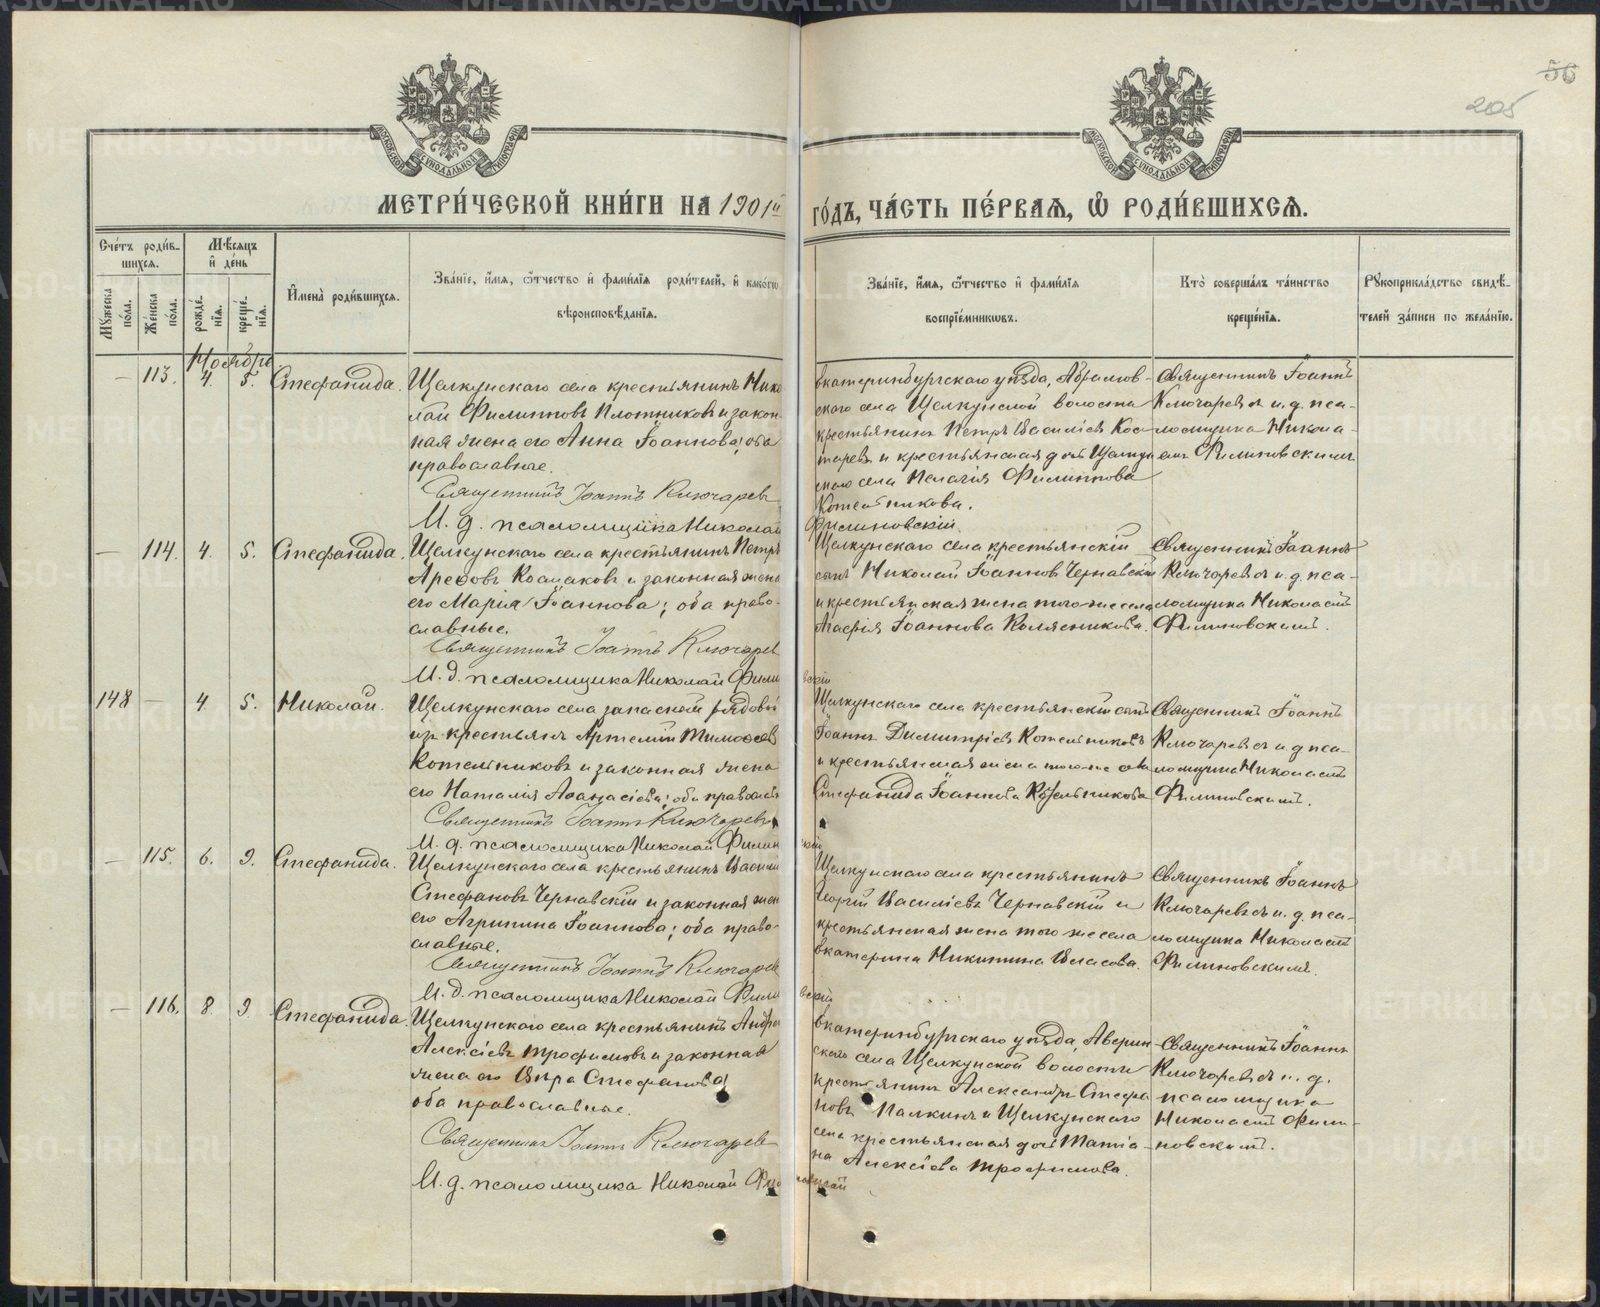 56
205
МОСКОВСКОЙ СѴНОДАЛЬНОЙ ТИПОГРАФІИ
МОСКОВСКОЙ СѴНОДАЛЬНОЙ ТИПОГРАФІИ
МЕТРИ́ЧЕСКОЙ КНИ́ГИ НА 1901й
ГО́ДЪ, ЧА́СТЬ ПЕ́РВАѦ, Ѽ РОДИ́ВШИХСѦ.
Сче́тъ роди́в-
шихсѧ.
Мꙋ́жеска по́ла.
Же́нска по́ла.
Мѣ́сѧцъ
и҆ де́нь
рожде́-нїѧ.
креще́-нїѧ.
И҆мена̀ роди́вшихсѧ.
Зва́нїе, и҆́мѧ, ѻ҆́тчество и҆ фами́лїѧ роди́телей, и҆ како́гѡ
вѣроисповѣ́данїѧ.
Зва́нїе, и҆́мѧ, ѻ҆́тчество и҆ фами́лїѧ
воспрїе́мникѡвъ.
Кто̀ соверша́лъ та́инство
креще́нїѧ.
Рꙋкоприкла́дство свидѣ́-
телей за́писи по жела́нїю.
Ноябрь
— 113. 4. 5. Стефанида.
Щелкунскаго села крестьянинъ Нико
лай Филипповъ Плотниковъ и закон-
ная жена его Анна Іоаннова; оба
православные.
Священникъ Іоаннъ Ключаревъ
И. д. псаломщика Николай Филиновскій
Екатеринбургскаго уѣзда, Абрамов-
скаго села Щелкунской волости
крестьянинъ Петръ Василіевъ Кос-
таревъ и крестьянская дочь Щелкун
скаго села Пелагія Филиппова
Котельникова.
Священникъ Іоаннъ
Ключаревъ съ и. д. пса-
ломщика Никола-
емъ Филиновскимъ
— 114. 4. 5. Стефанида.
Щелкунскаго села крестьянинъ Петръ
Арефовъ Космаковъ и законная жена
его Марія Іоаннова; оба право-
славные.
Священникъ Іоаннъ Ключарев
И. д. псаломщика Николай Филиновскій
Щелкунскаго села крестьянскій
сынъ Николай Іоанновъ Чернавскій
и крестьянская жена того-же села
Агафія Іоаннова Колясникова.
Священникъ Іоаннъ
Ключаревъ съ и. д. пса-
ломщика Николаемъ
Филиновскимъ.
148 — 4 5. Николай.
Щелкунскаго села запасной рядовой
изъ крестьянъ Артемій Тимофеев
Котельниковъ и законная жена
его Наталія Аѳанасіева; оба православ
Священникъ Іоаннъ Ключаревъ
И. д. псаломщика Николай Филиновскій
Щелкунскаго села крестьянскій сынъ
Іоаннъ Димитріевъ Котельниковъ
и крестьянская жена того-же села
Стефанида Іоаннова Котельникова
Священникъ Іоаннъ
Ключаревъ съ и. д. пса-
ломщика Николаемъ
Филиновскимъ.
— 115. 6. 9. Стефанида.
Щелкунскаго села крестьянинъ Василій
Стефановъ Чернавскій и законная жен
его Агрипина Іоаннова; оба право-
славные.
Священникъ Іоаннъ Ключарев
И. д. псаломщика Николай Филиновскій
Щелкунскаго села крестьянинъ
Георгій Василіевъ Чернавскій и
крестьянская жена того же села
Екатерина Никитина Власова.
Священникъ Іоаннъ
Ключаревъ съ и. д. пса-
ломщика Николаемъ
Филиновскимъ.
— 116. 8. 9. Стефанида.
Щелкунскаго села крестьянинъ Андрей
Алексіевъ Трофимовъ и законная
жена его Вѣра Стефанова;
оба православные.
Священникъ Іоаннъ Ключаревъ
И. д. псаломщика Николай Филиновскій
Екатеринбургскаго уѣзда, Аверин-
скаго села Щелкунской волости
крестьянинъ Александръ Стефа
новъ Палкинъ и Щелкунскаго
села крестьянская дочь Татіа-
на Алексіева Трофимова.
Священникъ Іоаннъ
Ключаревъ съ и. д.
псаломщика
Николаемъ Фили-
новскимъ.
METRIKI.GASU-URAL.RU